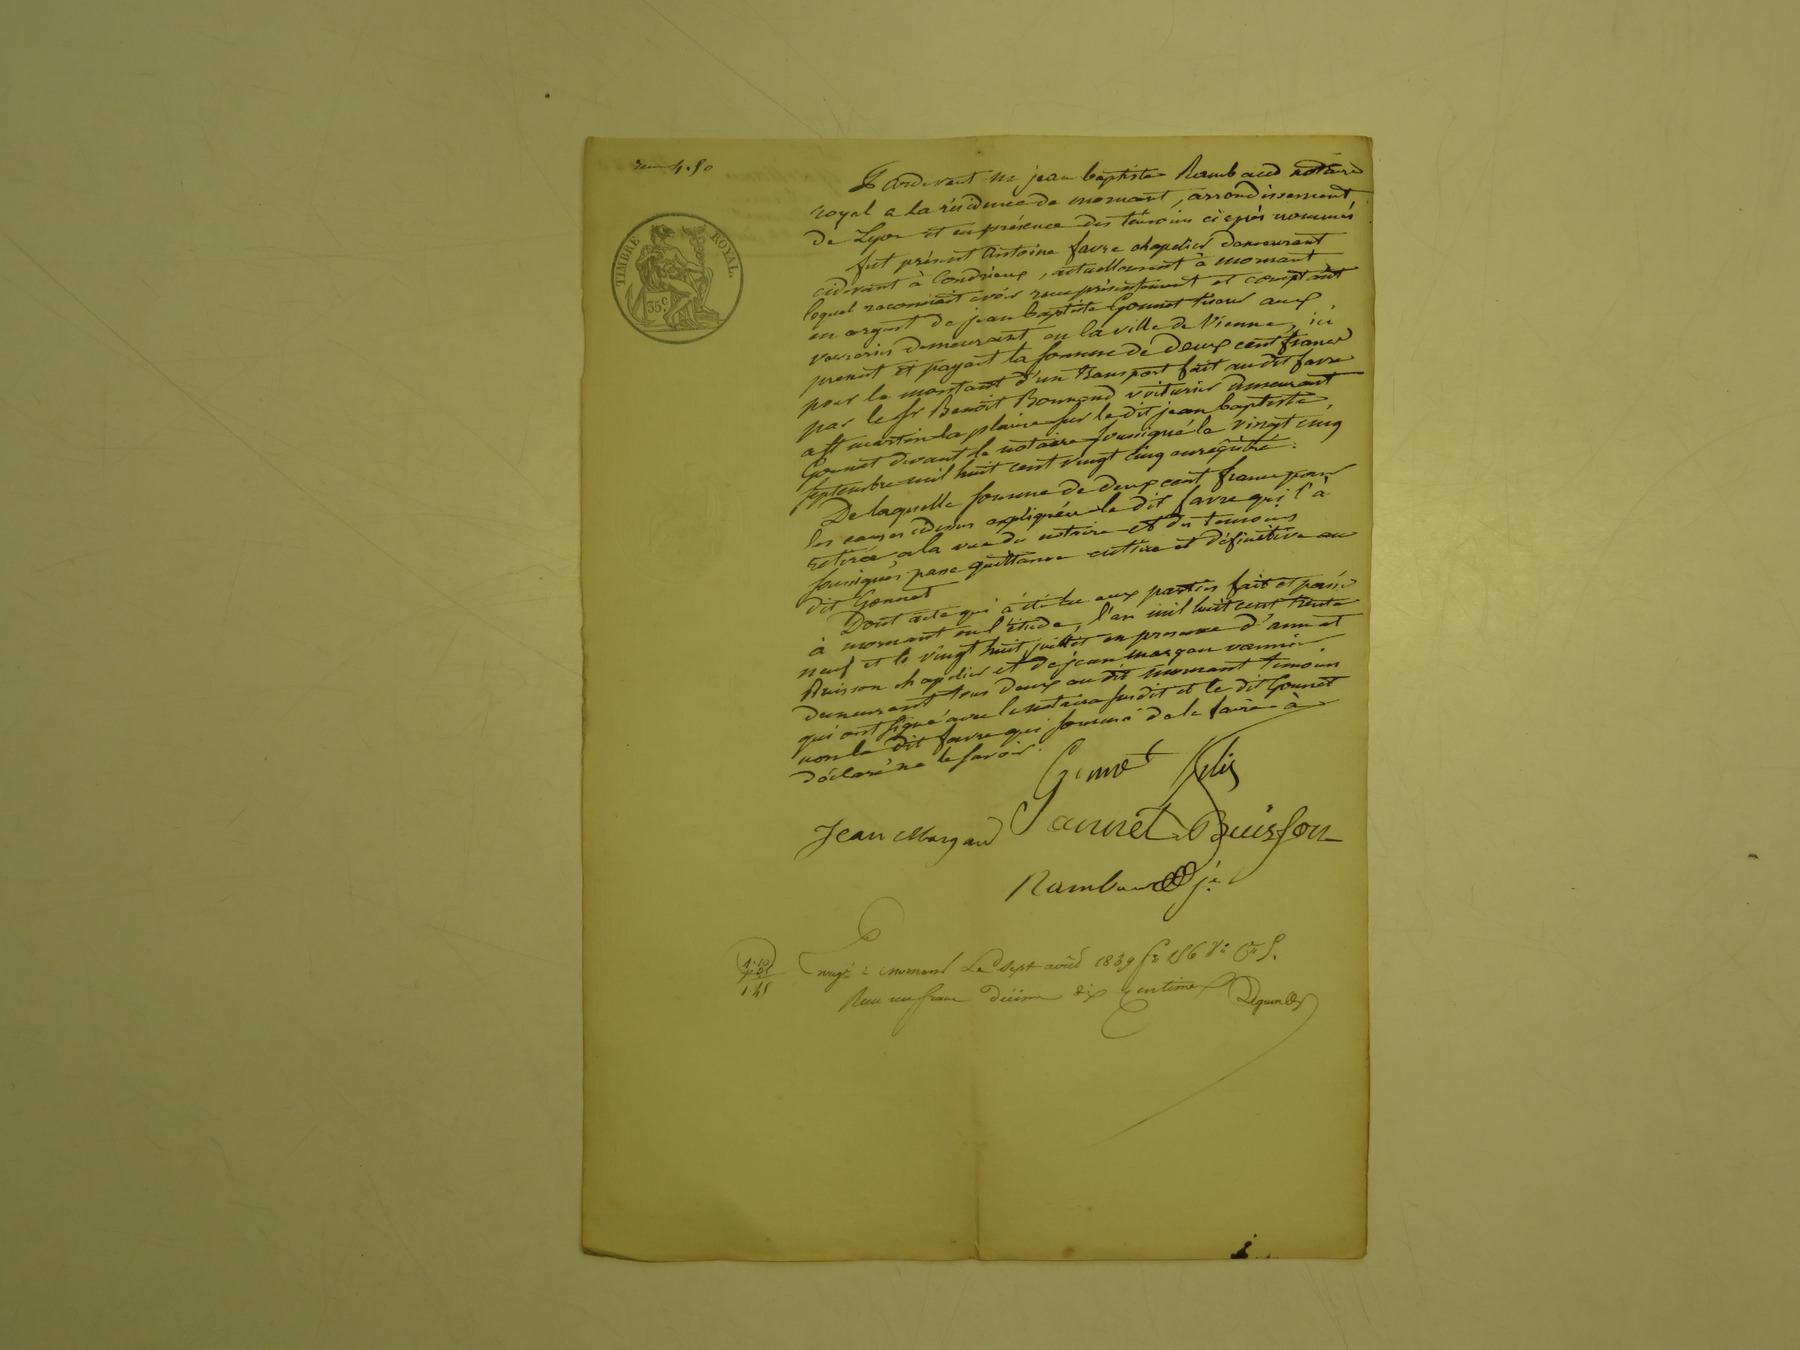 reçu 4.50
TIMBRE ROYAL.
35 c.
Pardevant Me jean baptiste Rambaud notaire
royal a la résidence de mornant, arrondissement
de Lyon et en présence des témoins ci après nommés
fut présent Antoine favre chapelier demeurant
cidevant à Condrieux, actuellement à mornant
lequel reconnait avoir reçu présentement et comptant
en argent de jean baptiste Gonnet aux
demeurant en la ville de Vienne, ici
present et payant la somme de deux cent francs
pour le montant d'un transport fait au dit favre
par le sr Benoît Bonnand voiturier demeurant
a st martin la plaine sur le dit jean baptiste
Gonnet devant le notaire soussigné le vingt cinq
septembre mil huit cent vingt cinq enregistré.
De laquelle somme de deux cent francs pour
les causes cidessus expliquées le dit favre qui l'à
retirée, a la vue du notaire et des temoins
soussignés, passe quittance entière et définitive au
dit Gonnet
Dont acte qui à été lu aux parties fait et passé
à mornant en l'étude, l'an mil huit cent trente
neuf et le vingt huit juillet en presence d'annet
Buisson chapelier et de jean margan vannier
demeurant tous deux au dit mornant temoins
qui ont signé avec le notaire susdit et le dit Gonnet
non le dit favre qui sommé de le faire à
déclaré ne le savoir.
Gonnet
Jean Margan Annet Buisson
Rambaud
1.10
1.45
Enregé à mornant Le sept août 1839 fo 156 Vo Ce 5.
Reçu un franc décime dix centimes